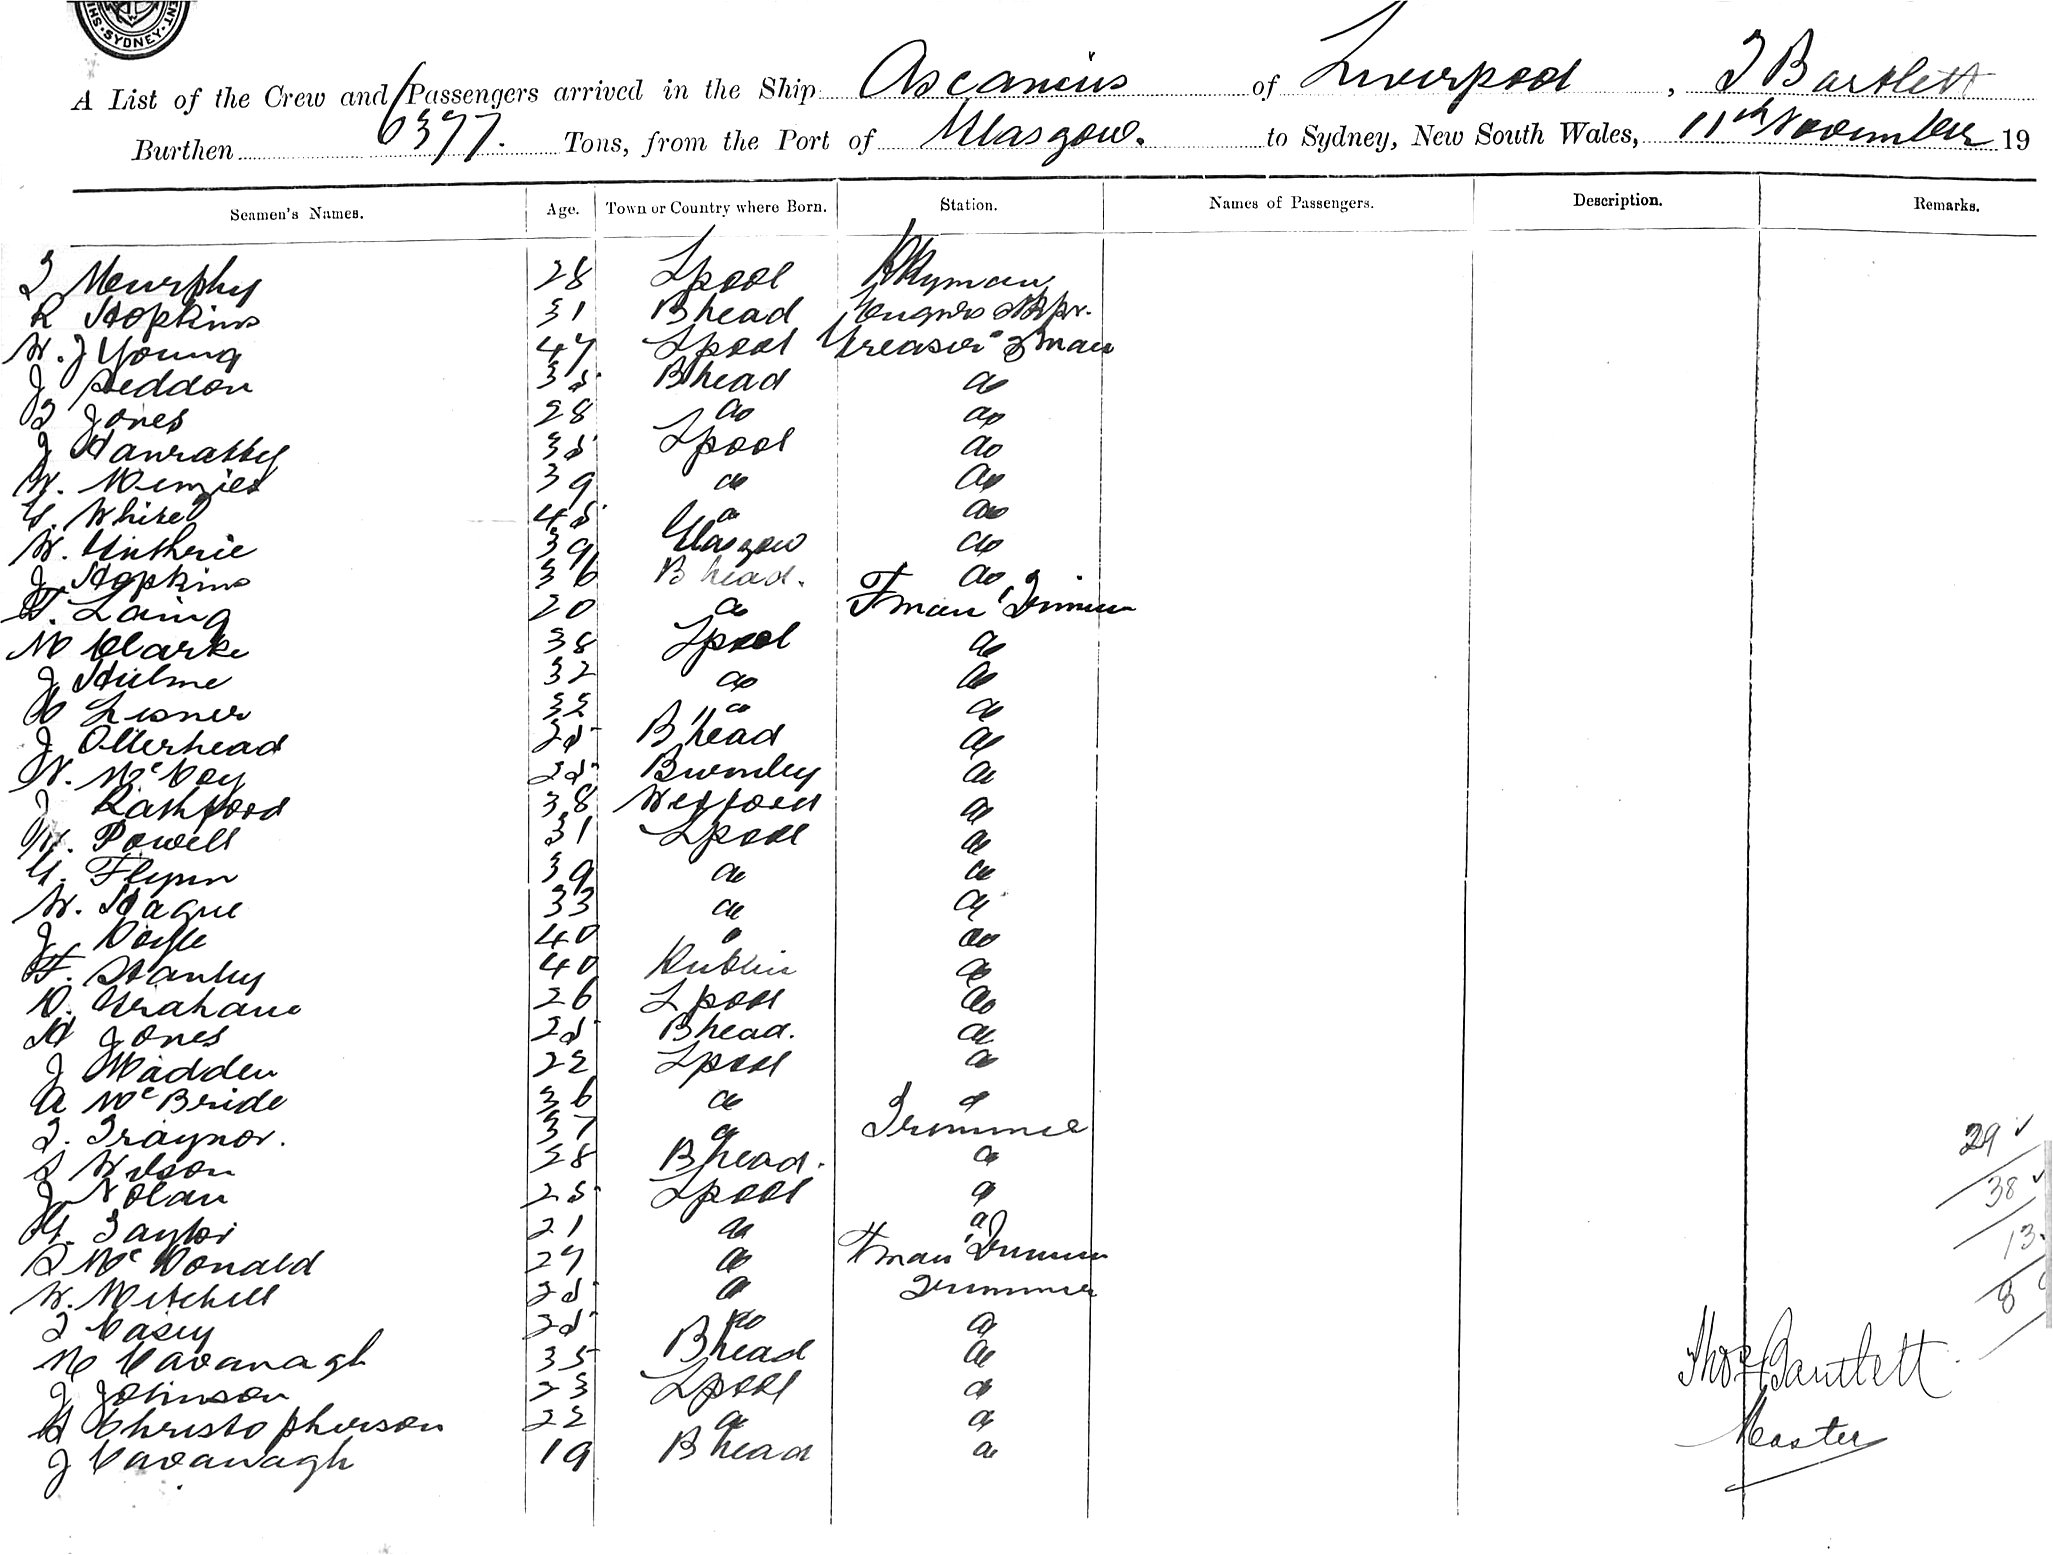 SYDNEY
A List of the Crew and Passengers arrived in the Ship Ascanius of Liverpool, T Bartlett
Burthen 6377. Tons, from the Port of Glasgow. to Sydney, New South Wales, 11th November 19
Seamen's Names. Age. Town or Country where Born. Station. Names of Passengers. Description. Remarks.
T Murphy 28 Lpool
R Hopkins 31 Bhead
W. J Young 47 Lpool Greaser Fman
J Seddon 35 Bhead do
T Jones 28 do do
J Hanratty 35 Lpool do
W. Menzies 39 do do
G. White 45 do do
W. Guthrie 39 Glasgow do
J Hopkins 36 Bhead. do
F. Laing 20 do Fman Trimmer
M Clarke 38 Lpool do
J Hulme 32 do do
Lisner do do
J Ollerhead 25 Bhead do
W. McCoy 25 Burnley do
J Rathford 38 Wexford do
W. Powell 31 Lpool do
G. Flynn 39 do do
W. Hague 33 do do
J Doyle 40 do do
F. Stanley 40 Dublin do
D. Graham 26 Lpool do
H Jones 25 Bhead. do
J Madden 22 Lpool do
A McBride 36 do do
T. Traynor. 37 do Trimmer
S Wilson 28 Bhead. do
J Nolan 25 Lpool do
G. Taylor 21 do do
S McDonald 27 do Fman Trimmer
W. Mitchell 25 do Trimmer
T Casey 25 do do
M Cavanagh 35 Bhead do
J Johnson 23 Lpool do
H Christopherson 22 do do
J Cavanagh 19 Bhead do
29 ✓
38 ✓
13
8
Thos Bartlett
Master